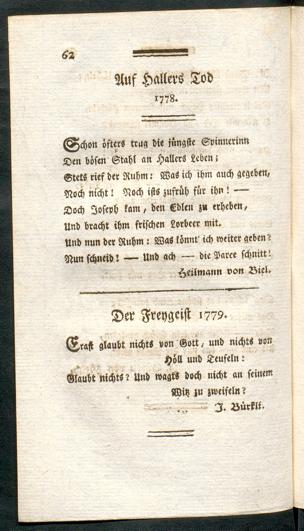 62
Auf Hallers Tod
1778.
Schon öfters trug die jüngste Spinnerinn
Den bösen Stahl an Hallers Leben;
Stets rief der Ruhm: Was ich ihm auch gegeben,
Noch nicht! Noch ists zufrüh für ihn! —
Doch Joseph kam, den Edlen zu erheben,
Und bracht ihm frischen Lorbeer mit.
Und nun der Ruhm: Was könnt ich weiter geben?
Nun schneid! — Und ach — die Parce schnitt!
Heilmann von Biel.
Der Freygeist 1779.
Erast glaubt nichts von Gott, und nichts von
Höll und Teufeln:
Glaubt nichts? Und wagts doch nicht an seinem
Witz zu zweifeln?
J. Bürkli.